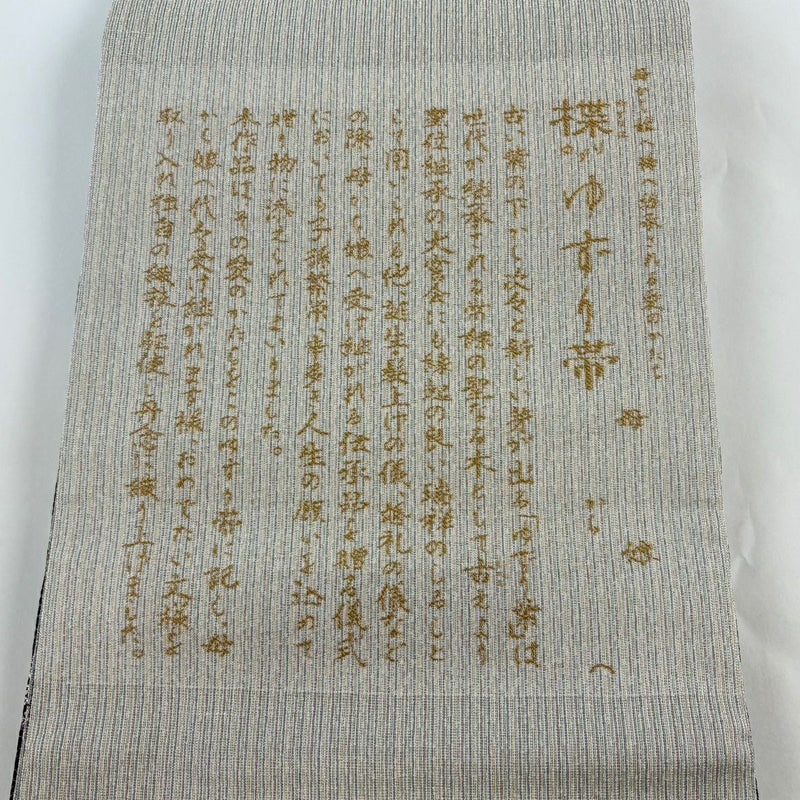 母から娘へ孫へ初承される愛のかたち
楪 ゆずり帯
ゆずりは
母から娘へ
古い葉の下から次々と新しい芽が出る「ゆずり葉」は
世代が継承される常緑の聖なる木として古えより
皇位継承の大宮会にも縁起の良い瑞祥のしるしと
して用いられる他、誕生・髪上げの儀、婚礼の儀など
の際に母から娘へ受け継がれる伝承品を贈る儀式
においても子孫繁栄、幸多き人生の願いを込めて
贈り物に添えられてまいりました。
本作品は、その愛のかたちをこのゆずり帯に記し、母
から娘へ代々受け継がれます様、おめでたい文様を
取り入れ独自の織技を駆使し丹念に織り上げました。